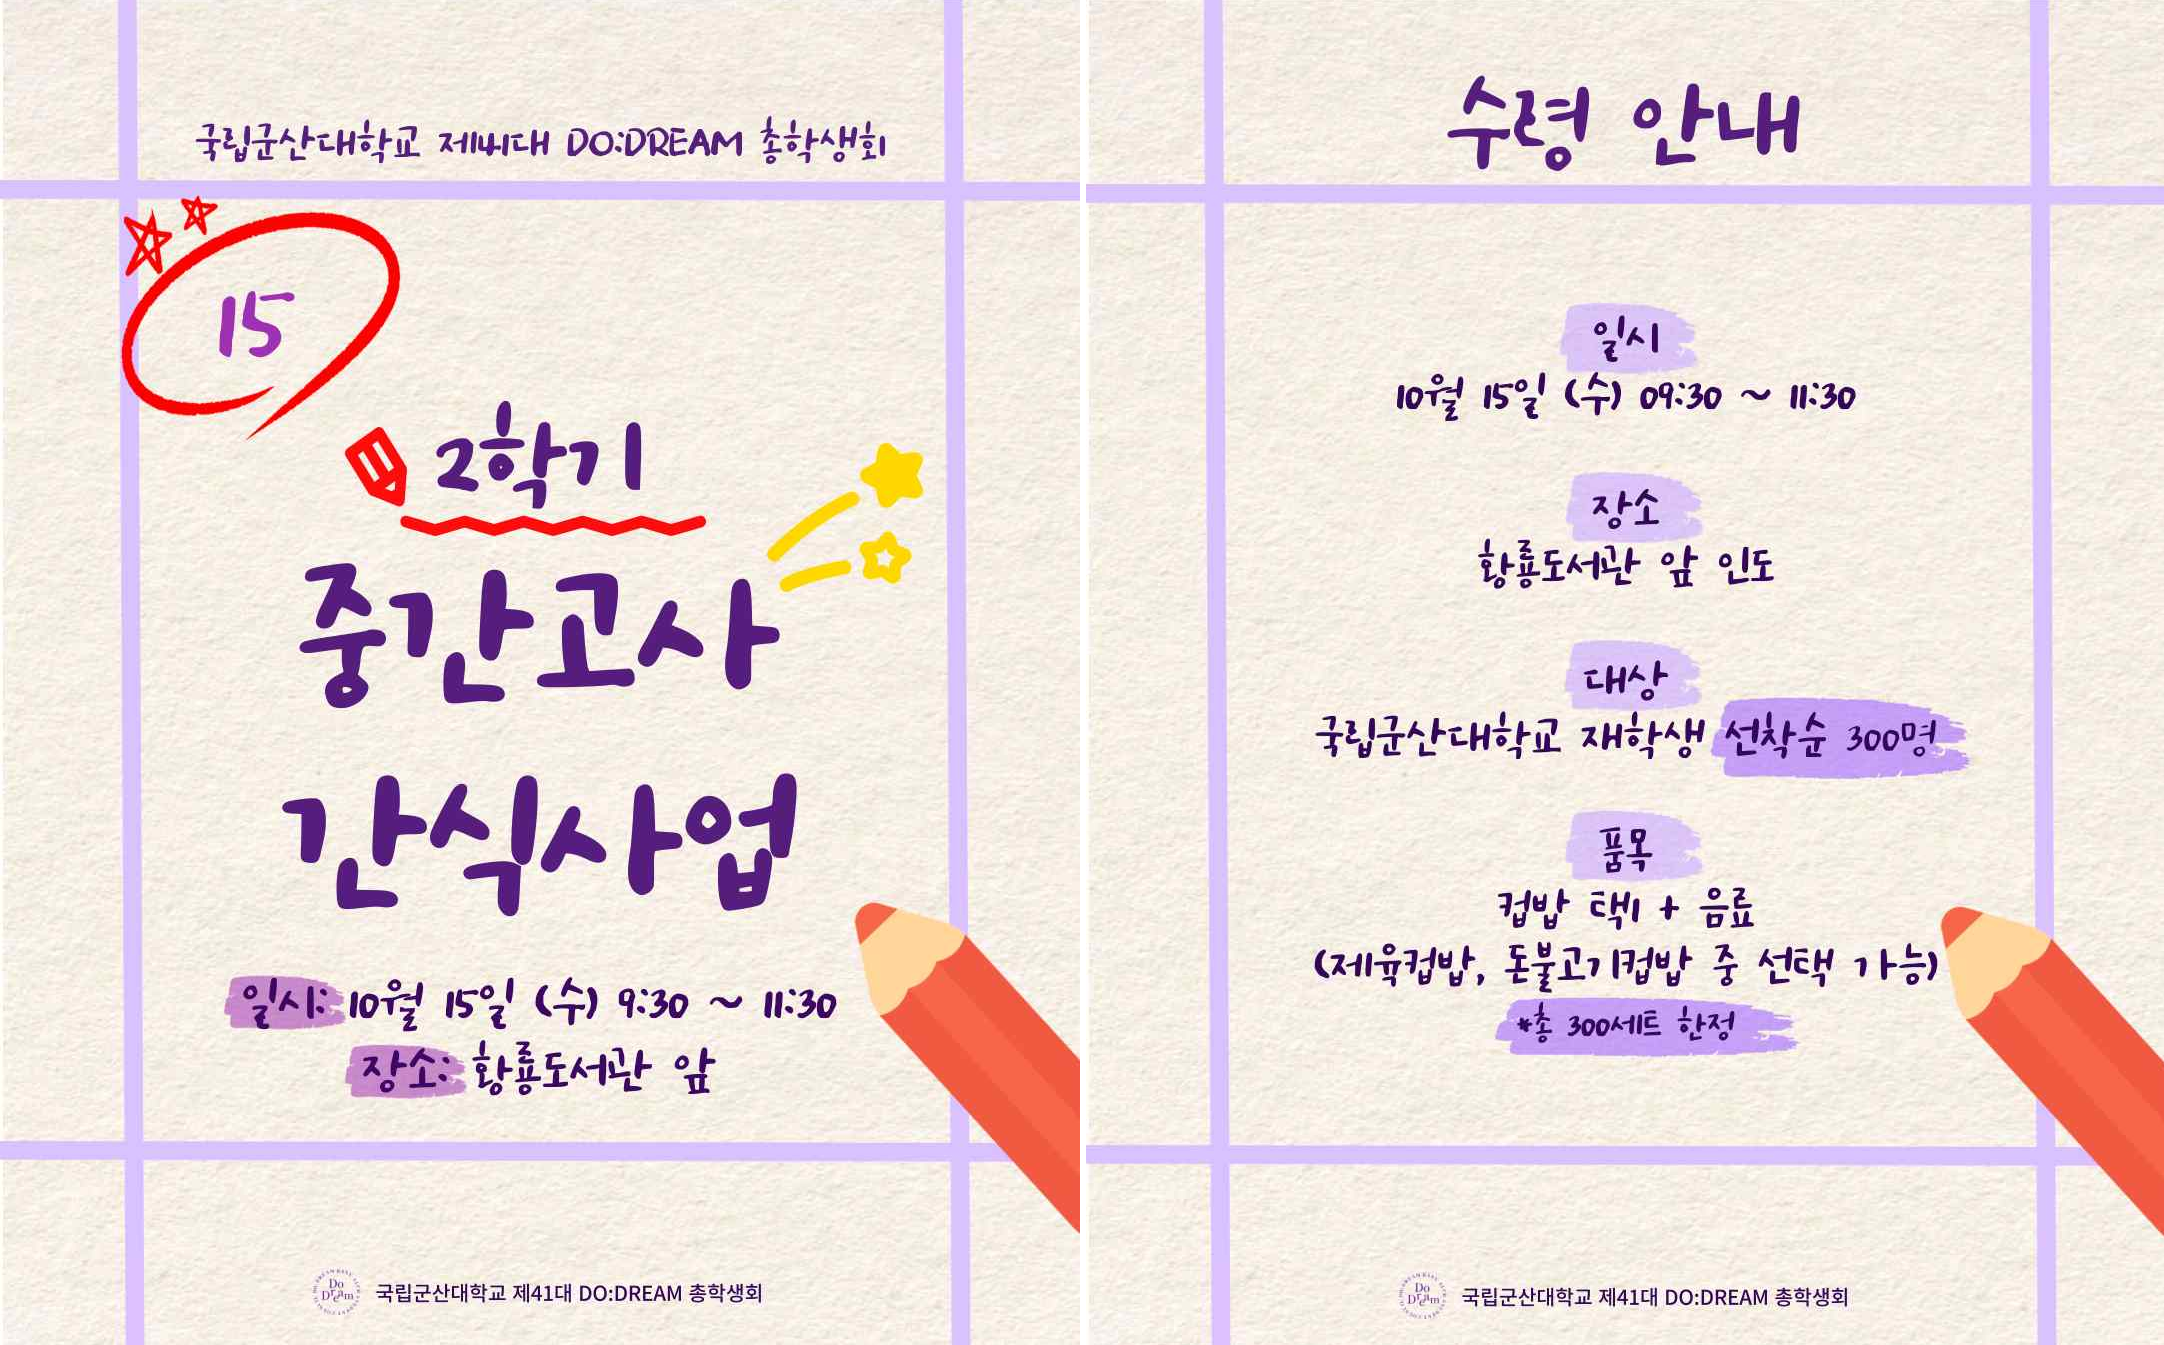 국립군산대학교 제41대 DO:DREAM 총학생회
15
2학기
중간고사
간식사업
일시: 10월 15일 (수) 9:30 ~ 11:30
장소: 황룡도서관 앞
Do
Dream
국립군산대학교 제41대 DO:DREAM 총학생회
수령 안내
일시
10월 15일 (수) 09:30 ~ 11:30
장소
황룡도서관 앞 인도
대상
국립군산대학교 재학생 선착순 300명
품목
컵밥 택1 + 음료
(제육컵밥, 돈불고기컵밥 중 선택 가능)
*총 300세트 한정
Do
Dream
국립군산대학교 제41대 DO:DREAM 총학생회